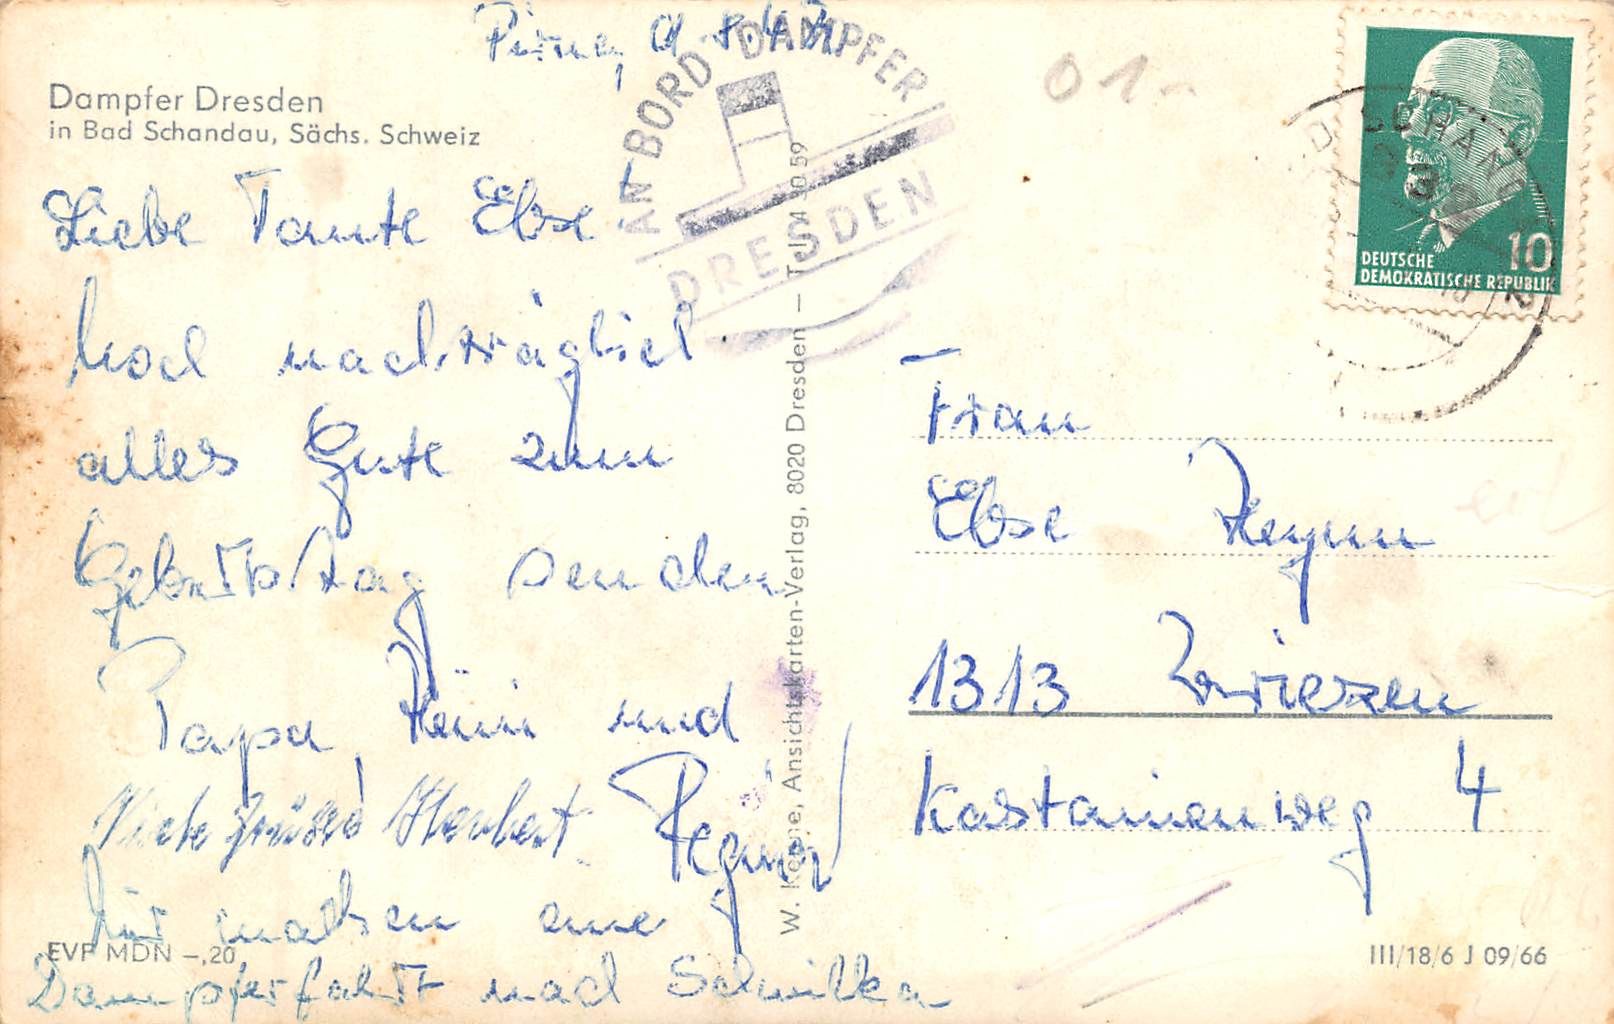 Pirna,
AN BORD DAMPFER
DRESDEN
01-
Dampfer Dresden
in Bad Schandau, Sächs. Schweiz
Liebe Tante Else
noch nachträglich
alles Gute zum
Geburtstag senden
Papa, Heini und
Viele Grüsse Herbert
Wir machen eine
Dampferfahrt nach Schmilka
EVP MDN -,20
W. Kopse, Ansichtskarten-Verlag, 8020 Dresden — TU 4 30 59
10
DEUTSCHE
DEMOKRATISCHE REPUBLIK
SCHAND
Frau
Else Heyun
1313 Wriezen
Kastanienweg 4
III/18/6 J 09/66